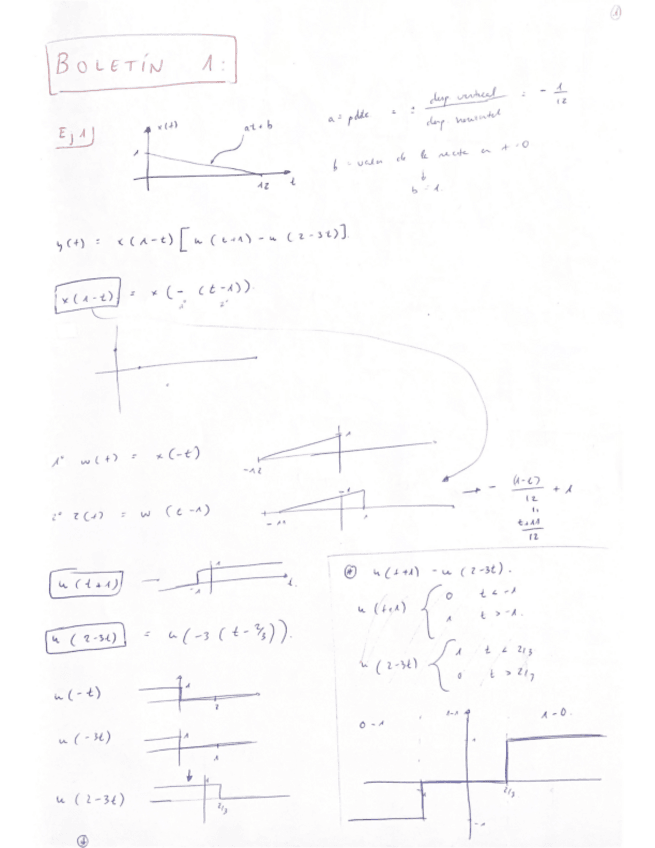 1
BOLETÍN 1:
Ej 1
x(t)
at+b
1
12
t
a = pdte = ± desp vertical / desp horizontal = - 1/12
b = valor de la recta en t=0
↓
b=1
y(t) = x(1-t) [u(t+1) - u(2-3t)]
x(1-t) = x(-(t-1)).
1º 2º
1º w(t) = x(-t)
-12
1
2º z(t) = w(t-1)
-11
1
1
→ - (1-t)/12 + 1
t+11/12
u(t+1)
-1
1
t
u(2-3t) = u(-3(t-2/3)).
u(-t)
u(-3t)
u(2-3t)
2/3
* u(t+1) - u(2-3t).
u(t+1) { 0 t<-1
1 t>-1.
u(2-3t) { 1 t<2/3
0 t>2/3
0-1
1-1
1-0.
2/3
-1